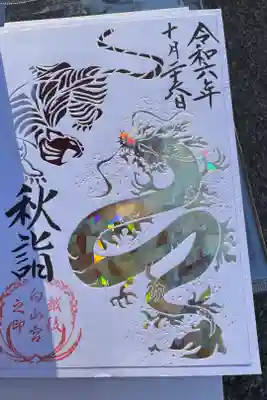 令和六年
十月二十六日
秋詣
越後
白山宮
之印